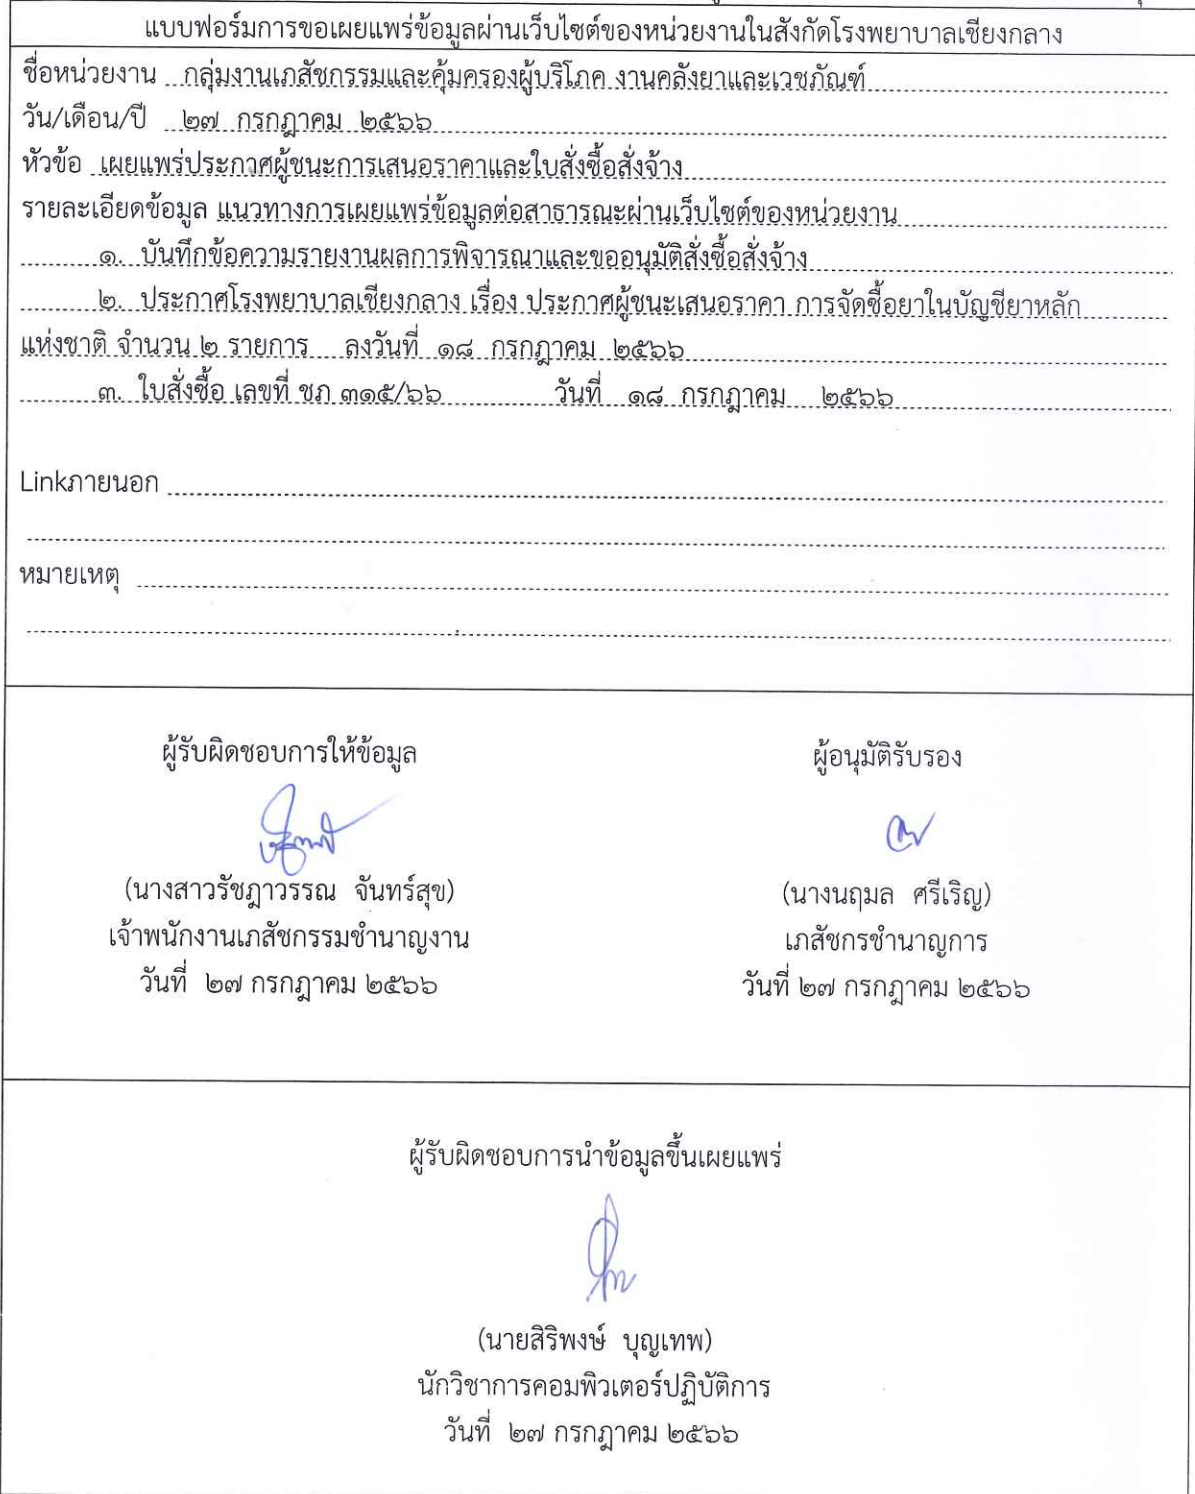 แบบฟอร์มการขอเผยแพร่ข้อมูลผ่านเว็บไซต์ของหน่วยงานในสังกัดโรงพยาบาลเชียงกลาง
ชื่อหน่วยงาน กลุ่มงานเภสัชกรรมและคุ้มครองผู้บริโภค งานคลังยาและเวชภัณฑ์
วัน/เดือน/ปี ๒๗ กรกฎาคม ๒๕๖๖
หัวข้อ เผยแพร่ประกาศผู้ชนะการเสนอราคาและใบสั่งซื้อสั่งจ้าง
รายละเอียดข้อมูล แนวทางการเผยแพร่ข้อมูลต่อสาธารณะผ่านเว็บไซต์ของหน่วยงาน
๑. บันทึกข้อความรายงานผลการพิจารณาและขออนุมัติสั่งซื้อสั่งจ้าง
๒. ประกาศโรงพยาบาลเชียงกลาง เรื่อง ประกาศผู้ชนะเสนอราคา การจัดซื้อยาในบัญชียาหลัก
แห่งชาติ จำนวน ๒ รายการ ลงวันที่ ๑๘ กรกฎาคม ๒๕๖๖
๓. ใบสั่งซื้อ เลขที่ ชภ ๓๑๕/๖๖ วันที่ ๑๘ กรกฎาคม ๒๕๖๖
Linkภายนอก
หมายเหตุ
ผู้รับผิดชอบการให้ข้อมูล
(นางสาวรัชฎาวรรณ จันทร์สุข)
เจ้าพนักงานเภสัชกรรมชำนาญงาน
วันที่ ๒๗ กรกฎาคม ๒๕๖๖
ผู้อนุมัติรับรอง
(นางนฤมล ศรีเริญ)
เภสัชกรชำนาญการ
วันที่ ๒๗ กรกฎาคม ๒๕๖๖
ผู้รับผิดชอบการนำข้อมูลขึ้นเผยแพร่
(นายสิริพงษ์ บุญเทพ)
นักวิชาการคอมพิวเตอร์ปฏิบัติการ
วันที่ ๒๗ กรกฎาคม ๒๕๖๖